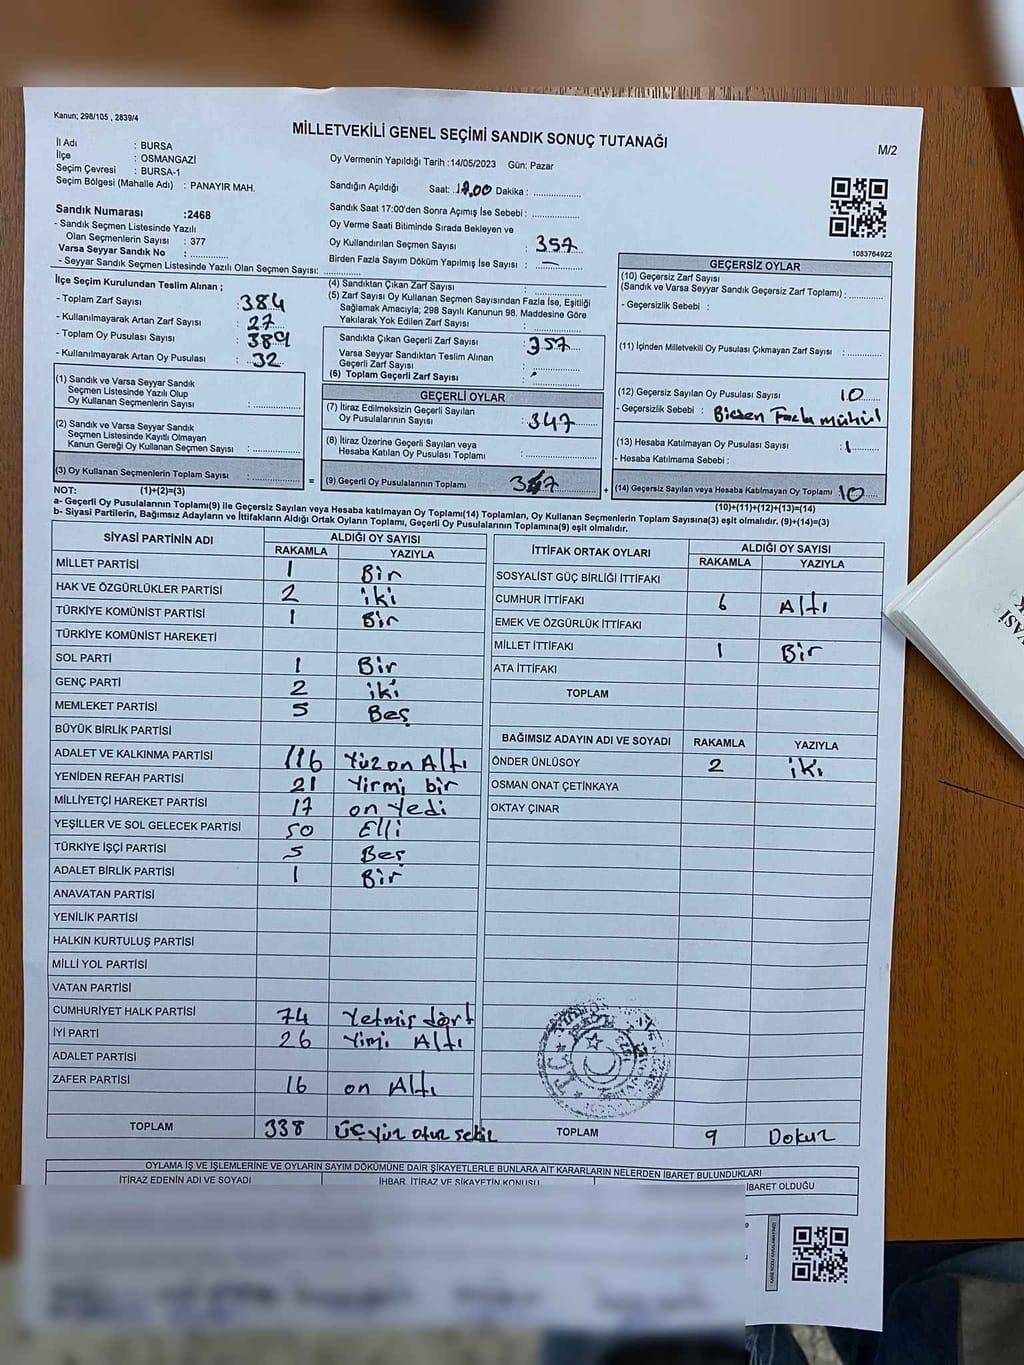 Kanun; 298/105 , 2839/4
MİLLETVEKİLİ GENEL SEÇİMİ SANDIK SONUÇ TUTANAĞI
M/2
İl Adı : BURSA
İlçe : OSMANGAZİ
Seçim Çevresi : BURSA-1
Seçim Bölgesi (Mahalle Adı) : PANAYIR MAH.
Sandık Numarası :2468
- Sandık Seçmen Listesinde Yazılı
Olan Seçmenlerin Sayısı : 377
Varsa Seyyar Sandık No :
- Seyyar Sandık Seçmen Listesinde Yazılı Olan Seçmen Sayısı:
Oy Vermenin Yapıldığı Tarih :14/05/2023 Gün: Pazar
Sandığın Açıldığı Saat: Dakika :
Sandık Saat 17:00'den Sonra Açımış İse Sebebi :
Oy Verme Saati Bitiminde Sırada Bekleyen ve
Oy Kullandırılan Seçmen Sayısı : 357
Birden Fazla Sayım Döküm Yapılmış İse Sayısı : —
1083764922
İlçe Seçim Kurulundan Teslim Alınan ;
- Toplam Zarf Sayısı : 384
- Kullanılmayarak Artan Zarf Sayısı : 27
- Toplam Oy Pusulası Sayısı : 389
- Kullanılmayarak Artan Oy Pusulası : 32
(1) Sandık ve Varsa Seyyar Sandık
Seçmen Listesinde Yazılı Olup
Oy Kullanan Seçmenlerin Sayısı :
(2) Sandık ve Varsa Seyyar Sandık
Seçmen Listesinde Kayıtlı Olmayan
Kanun Gereği Oy Kullanan Seçmen Sayısı :
(3) Oy Kullanan Seçmenlerin Toplam Sayısı :
(4) Sandıktan Çıkan Zarf Sayısı :
(5) Zarf Sayısı Oy Kullanan Seçmen Sayısından Fazla İse, Eşitliği
Sağlamak Amacıyla; 298 Sayılı Kanunun 98. Maddesine Göre
Yakılarak Yok Edilen Zarf Sayısı :
Sandıkta Çıkan Geçerli Zarf Sayısı : 357
Varsa Seyyar Sandıktan Teslim Alınan
Geçerli Zarf Sayısı :
(6) Toplam Geçerli Zarf Sayısı :
GEÇERLİ OYLAR
(7) İtiraz Edilmeksizin Geçerli Sayılan
Oy Pusulalarının Sayısı : 347
(8) İtiraz Üzerine Geçerli Sayılan veya
Hesaba Katılan Oy Pusulası Toplamı :
= (9) Geçerli Oy Pusulalarının Toplamı 347 +
GEÇERSİZ OYLAR
(10) Geçersiz Zarf Sayısı
(Sandık ve Varsa Seyyar Sandık Geçersiz Zarf Toplamı) :
- Geçersizlik Sebebi :
(11) İçinden Milletvekili Oy Pusulası Çıkmayan Zarf Sayısı :
(12) Geçersiz Sayılan Oy Pusulası Sayısı : 10
- Geçersizlik Sebebi : Birden Fazla mühür
(13) Hesaba Katılmayan Oy Pusulası Sayısı :
- Hesaba Katılmama Sebebi :
(14) Geçersiz Sayılan veya Hesaba Katılmayan Oy Toplamı : 10
NOT: (1)+(2)=(3)
(10)+(11)+(12)+(13)=(14)
a- Geçerli Oy Pusulaları Toplamı(9) ile Geçersiz Sayılan veya Hesaba katılmayan Oy Toplamı(14) Toplamları, Oy Kullanan Seçmenlerin Toplam Sayısına(3) eşit olmalıdır. (9)+(14)=(3)
b- Siyasi Partilerin, Bağımsız Adayların ve İttifakların Aldığı Ortak Oyların Toplamı, Geçerli Oy Pusulalarının Toplamına(9) eşit olmalıdır.
SİYASİ PARTİNİN ADI ALDIĞI OY SAYISI
RAKAMLA YAZIYLA
MİLLET PARTİSİ 1 Bir
HAK VE ÖZGÜRLÜKLER PARTİSİ 2 iki
TÜRKİYE KOMÜNİST PARTİSİ 1 Bir
TÜRKİYE KOMÜNİST HAREKETİ
SOL PARTİ 1 Bir
GENÇ PARTİ 2 iki
MEMLEKET PARTİSİ 5 Beş
BÜYÜK BİRLİK PARTİSİ
ADALET VE KALKINMA PARTİSİ 116 Yüz on Altı
YENİDEN REFAH PARTİSİ 21 Yirmi bir
MİLLİYETÇİ HAREKET PARTİSİ 17 on Yedi
YEŞİLLER VE SOL GELECEK PARTİSİ 50 Elli
TÜRKİYE İŞÇİ PARTİSİ 5 Beş
ADALET BİRLİK PARTİSİ 1 Bir
ANAVATAN PARTİSİ
YENİLİK PARTİSİ
HALKIN KURTULUŞ PARTİSİ
MİLLİ YOL PARTİSİ
VATAN PARTİSİ
CUMHURİYET HALK PARTİSİ 74 Yetmiş dört
İYİ PARTİ 26 Yimi Altı
ADALET PARTİSİ
ZAFER PARTİSİ 16 on Altı
TOPLAM 338 üç yüz otuz sekiz
İTTİFAK ORTAK OYLARI ALDIĞI OY SAYISI
RAKAMLA YAZIYLA
SOSYALİST GÜÇ BİRLİĞİ İTTİFAKI
CUMHUR İTTİFAKI 6 Altı
EMEK VE ÖZGÜRLÜK İTTİFAKI
MİLLET İTTİFAKI 1 Bir
ATA İTTİFAKI
TOPLAM
BAĞIMSIZ ADAYIN ADI VE SOYADI RAKAMLA YAZIYLA
ÖNDER ÜNLÜSOY 2 iki
OSMAN ONAT ÇETİNKAYA
OKTAY ÇINAR
TOPLAM 9 Dokuz
OYLAMA İŞ VE İŞLEMLERİNE VE OYLARIN SAYIM DÖKÜMÜNE DAİR ŞİKAYETLERLE BUNLARA AİT KARARLARIN NELERDEN İBARET BULUNDUKLARI
İTİRAZ EDENİN ADI VE SOYADI İHBAR, İTİRAZ VE ŞİKAYETİN KONUSU İBARET OLDUĞU